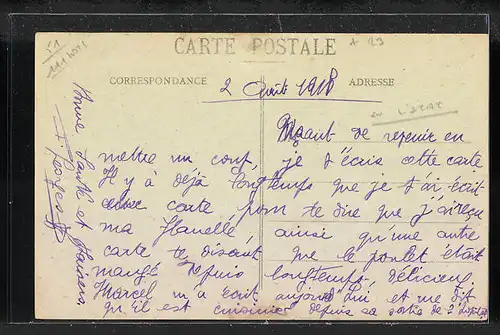 CARTE POSTALE
CORRESPONDANCE
ADRESSE
2 Août 1918
en L'ETAT
Avant de revenir en
mettre un coup, je t'écris cette carte
Il y a déjà longtemps que je t'ai écrit
carte, pour te dire que j'ai reçu
ma flanelle, ainsi qu'une autre
carte te disant que le poulet était
mangé depuis longtemps, délicieux
Marcel m'a écrit aujourd'hui et me dit
qu'il est cuisinier depuis sa sortie de l'
Bonne Santé et
Georges